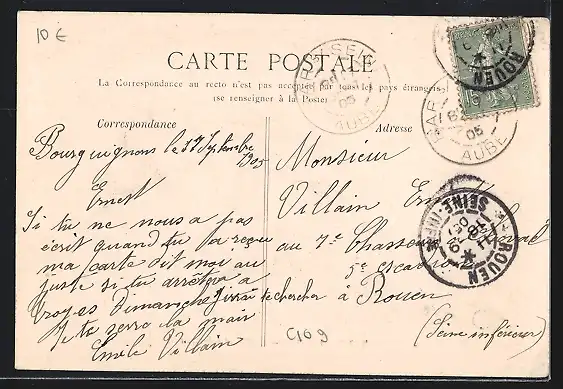 10 €
CARTE POSTALE
La Correspondance au recto n'est pas acceptée par tous les pays étrangers
(se renseigner à la Poste)
Correspondance
Adresse
Bourguignons le 17 Septembre
1905
Ernest
Si tu ne nous a pas
écrit quand tu a reçu
ma carte dit moi au
juste si tu arrêtra a
troyes dimanche j'irrai te chercher
Je te serre la main
Emile Villain
Monsieur
Villain Ernest
au 7e Chasseurs à cheval
5e escadron
à Rouen
(Seine inférieure)
C169
AUBE
05
15
ROUEN
AUBE
05
ROUEN
SEINE-INFRE
18 - 9
05